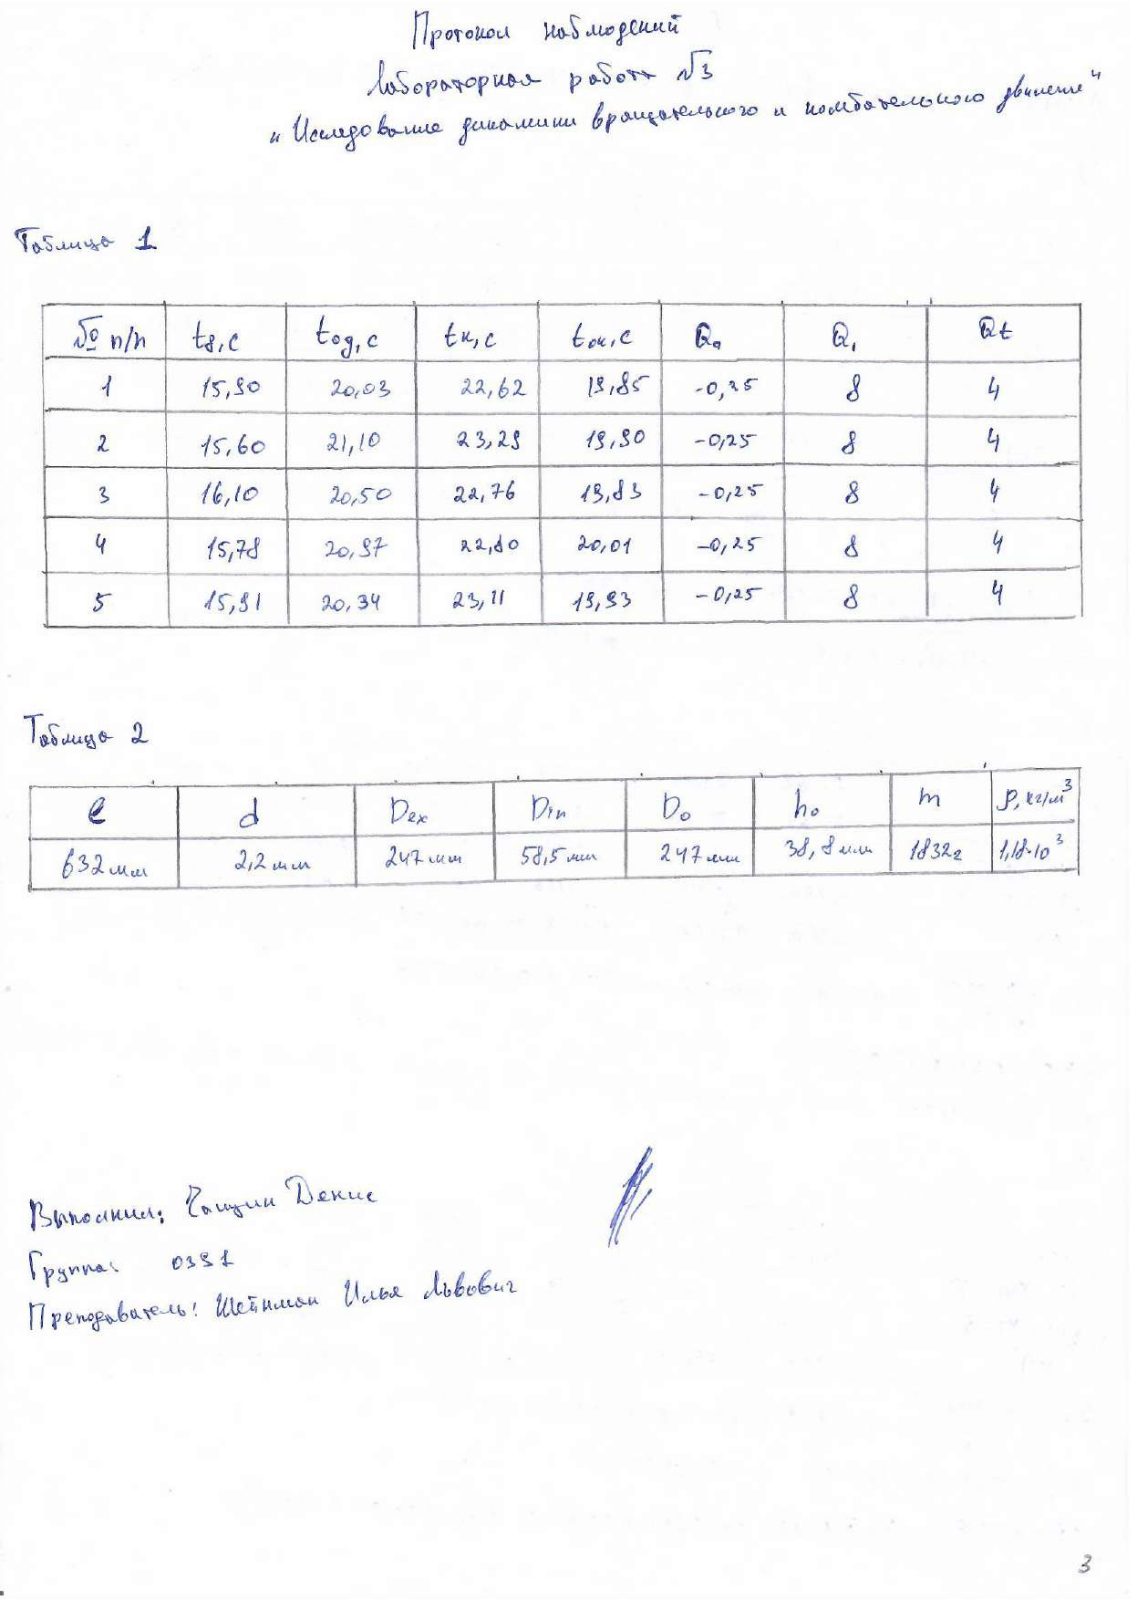 Протокол наблюдений
Лабораторная работа №3
"Исследование динамики вращательного и колебательного движение"
Таблица 1
№ п/п tд, с tод, с tк, с tок, с Q₀ Q₁ Qt
1 15,90 20,03 22,62 19,85 -0,25 8 4
2 15,60 21,10 23,29 19,90 -0,25 8 4
3 16,10 20,50 22,76 19,83 -0,25 8 4
4 15,78 20,97 22,80 20,01 -0,25 8 4
5 15,91 20,34 23,11 19,93 -0,25 8 4
Таблица 2
l d Dex Din D₀ h₀ m ρ, кг/м³
632мм 2,2мм 247мм 58,5мм 247мм 38,8мм 1832г 1,18·10³
Выполнил: Чащин Денис
Группа: 0391
Преподаватель: Шейнман Илья Львович
3